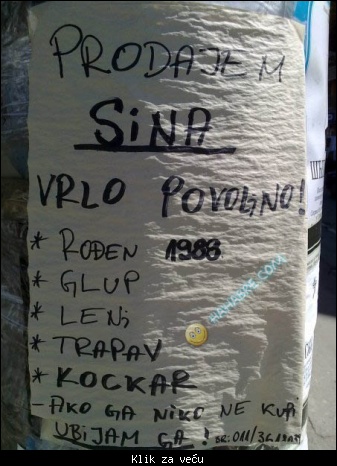 PRODAJEM
SINA
VRLO POVOGNO!
* ROĐEN 1986
* GLUP
* LENj
* TRAPAV
* KOCKAR
- AKO GA NIKO NE KUPI
UBIJAM GA! BR: 011/361
HAHADE.COM
Klik za veću